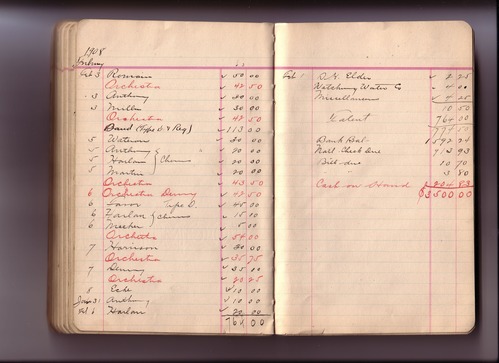 1908
Feb 3 Romain 50 00
Orchestra 42 50
3 Anthony 20 00
3 Miller 30 00
Orchestra 42 50
Band (Type D & Reg) 113 00
5 Watson 30 00
5 Anthony & 20 00
5 Harlan } Chorus 20 00
5 Martin 20 00
Orchestra 43 50
6 Orchestra Denny 42 50
6 Favor Type D. 45 00
6 Harlan & Chorus 15 00
6 Meeker 5 00
Orchestra 54 00
7 Harrison 30 00
Orchestra 35 75
7 Denny 35 00
Orchestra 20 25
8 10 00
Jan 31 Anthony 10 00
Feb 6 Harlan 20 00
761 00
Feb 1 Elder 2 25
Watchung Water Co 4 00
Miscellaneous 4 25
10 50
Talent 764 00
774 50
Bank Bal- 1592 24
Natl
Bill-due 10 70
3 80
Cash on Hand
$3500 00